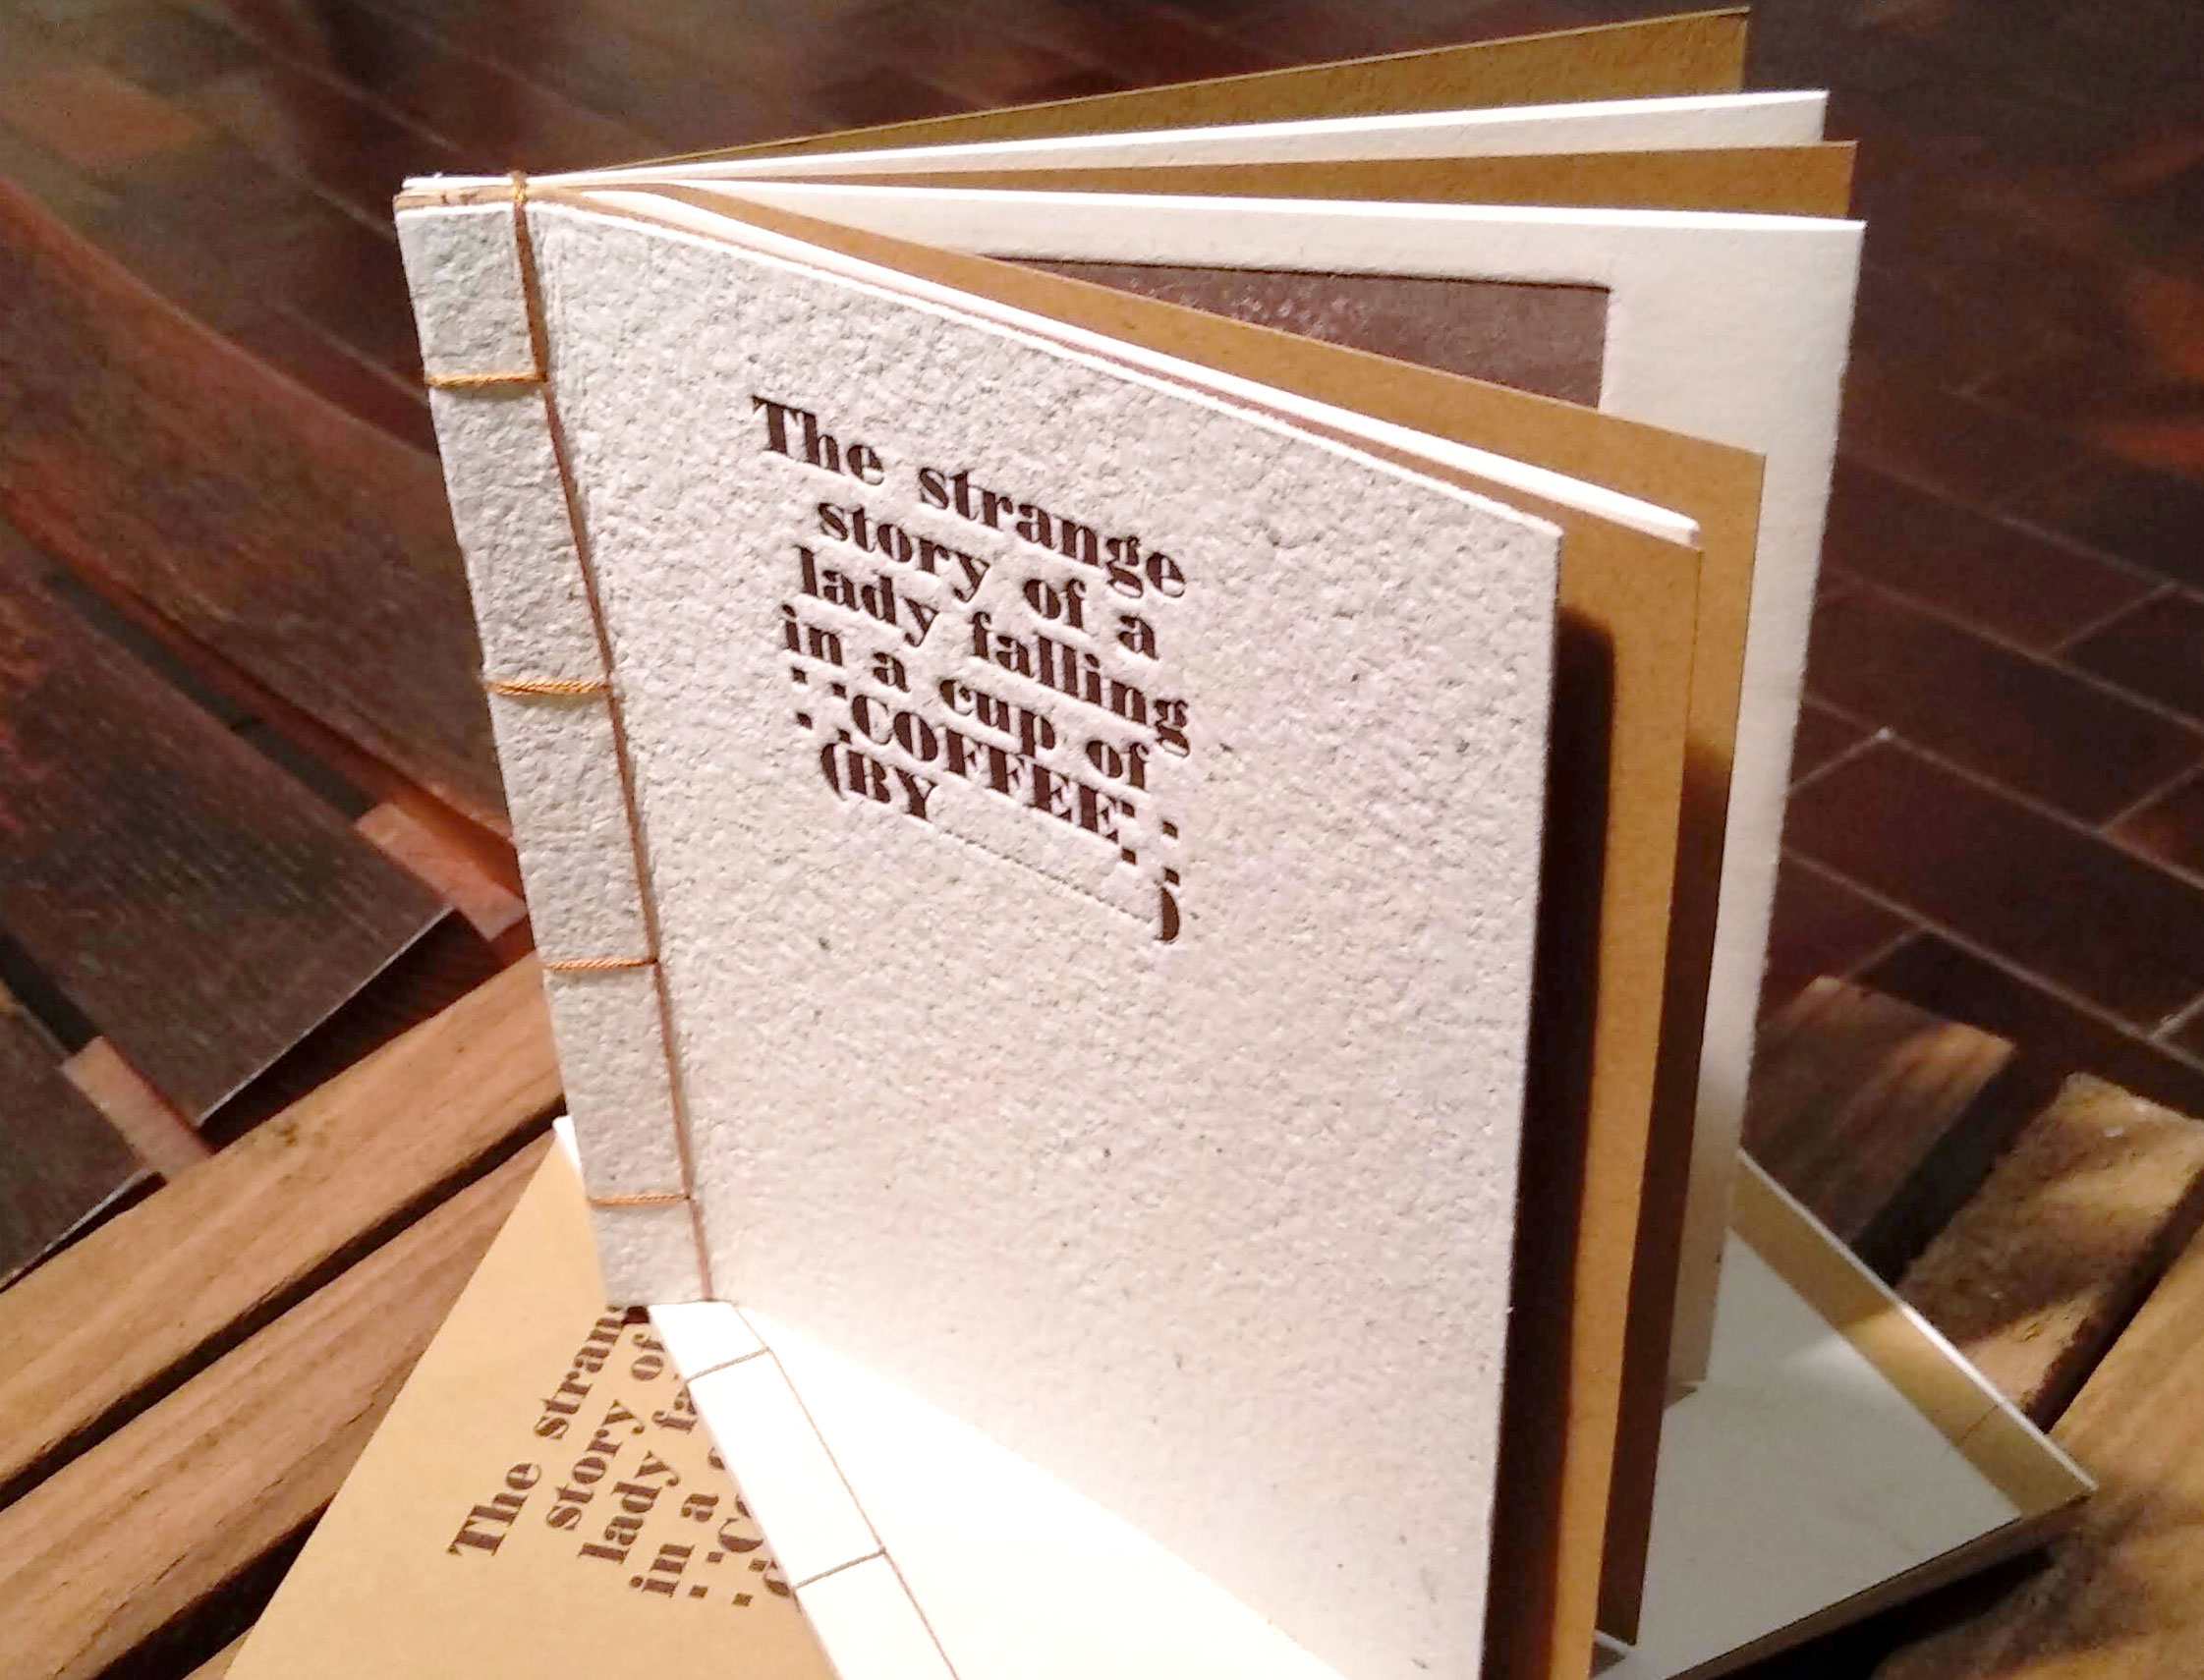 The strange
story of a
lady falling
in a cup of
: :COFFEE: :
(BY )
The strang
story of
lady fa
in a